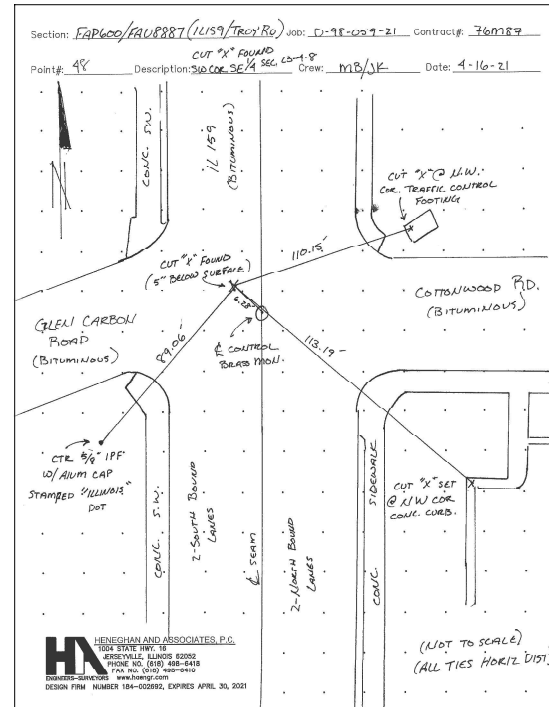 Section: FAP600/FAU8887 (IL159/TROY RD) Job: D-98-029-21 Contract#: 76M89
Point#: 48 Description: CUT "X" FOUND SW COR SE 1/4 SEC. Crew: MB/JK Date: 4-16-21
CONC. S.W.
IL 159
(BITUMINOUS)
N
CUT "X" @ N.W.
COR. TRAFFIC CONTROL
FOOTING
110.15'
CUT "X" FOUND
(5" BELOW SURFACE)
6.28'
COTTONWOOD RD.
(BITUMINOUS)
GLEN CARBON
ROAD
(BITUMINOUS)
89.06'
℄ CONTROL
BRASS MON.
113.19
CTR 5/8" IPF
W/ ALUM CAP
STAMPED "ILLINOIS"
DOT
CONC. S.W.
2-SOUTH BOUND
LANES
℄ SEAM
2-NORTH BOUND
LANES
SIDEWALK
CONC.
CUT "X" SET
@ NW COR
CONC. CURB.
(NOT TO SCALE)
(ALL TIES HORIZ DIST)
HA
ENGINEERS-SURVEYORS
HENEGHAN AND ASSOCIATES, P.C.
1004 STATE HWY. 16
JERSEYVILLE, ILLINOIS 62052
PHONE NO. (618) 498-6418
FAX NO. (618) 498-6410
www.haengr.com
DESIGN FIRM NUMBER 184-002692, EXPIRES APRIL 30, 2021